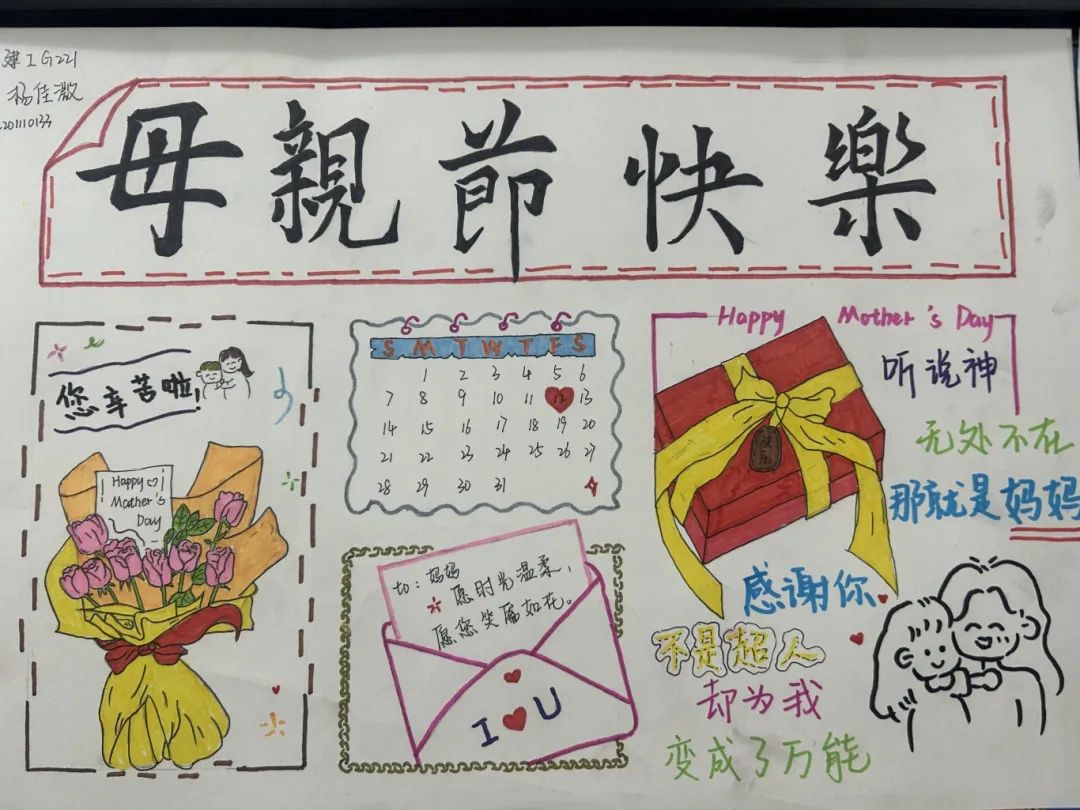 建工G221
杨佳激
201110133
母親節快樂
您辛苦啦!
Happy
Mother's
Day
S M T W T F S
1 2 3 4 5 6
7 8 9 10 11 12 13
14 15 16 17 18 19 20
21 22 23 24 25 26 27
28 29 30 31
to:妈妈
愿时光温柔,
愿您笑靥如花。
I U
Happy Mother's Day
快乐
听说神
无处不在
那就是妈妈
感谢你
不是超人
却为我
变成了万能